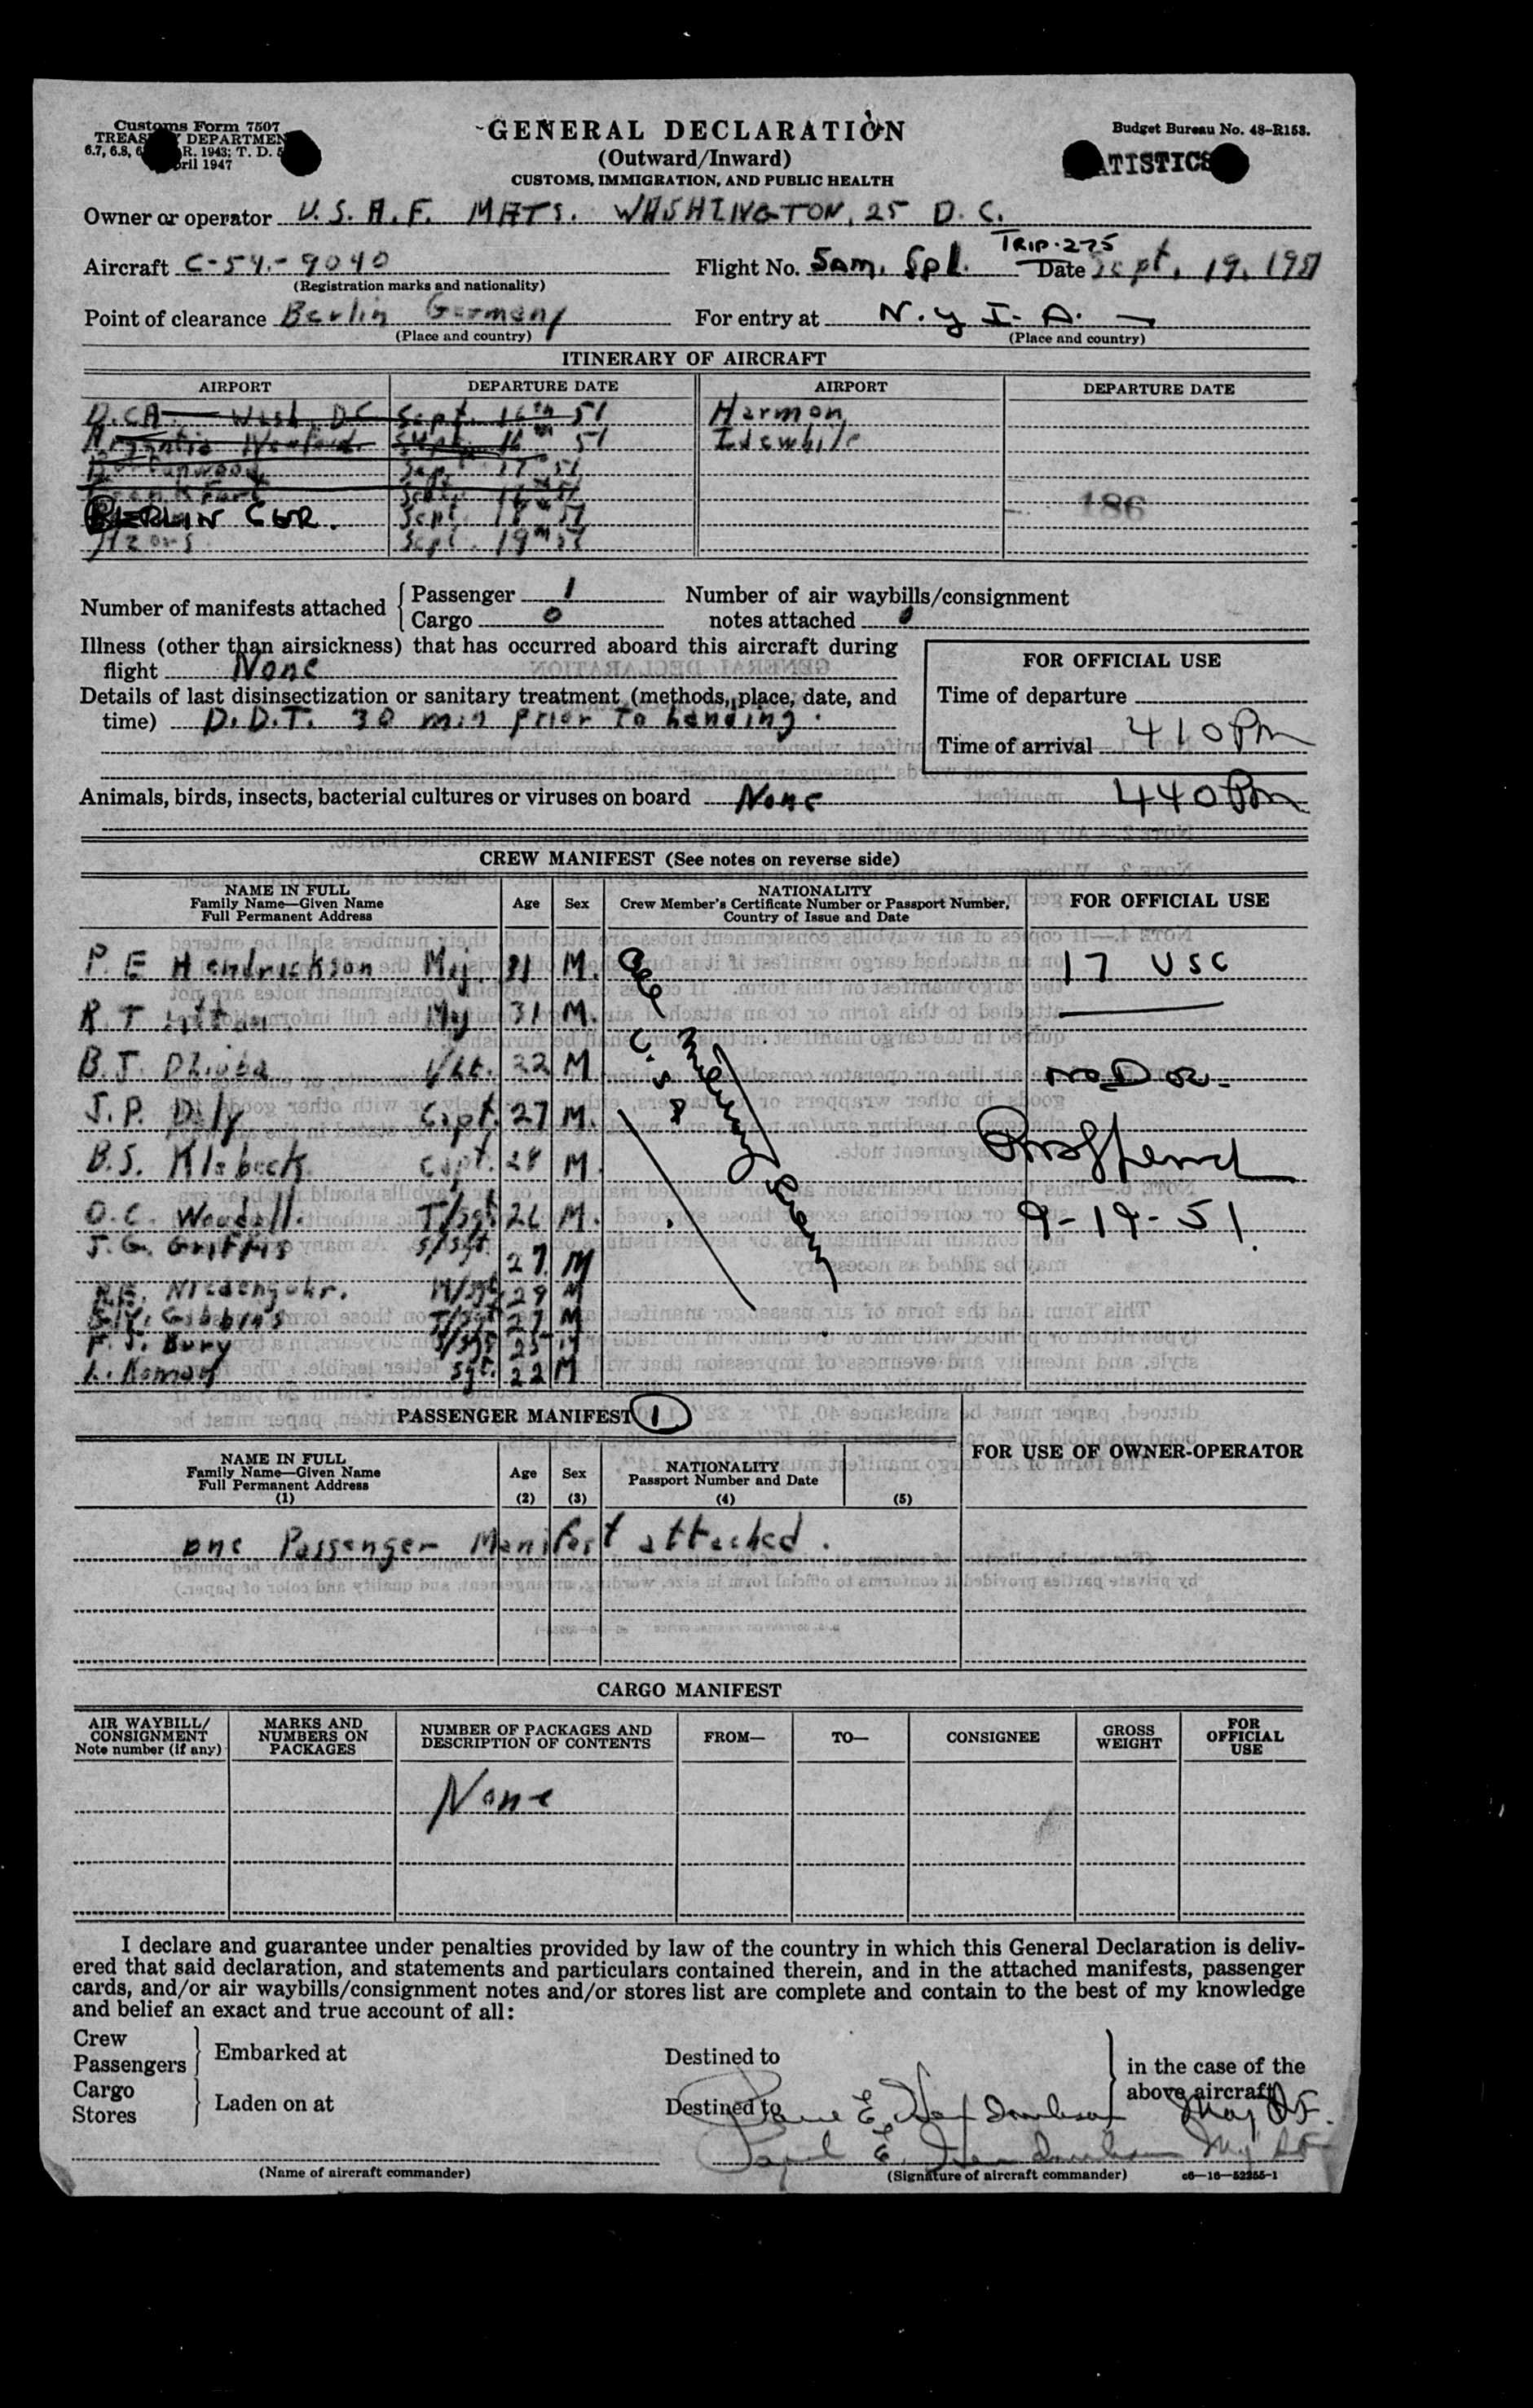 Customs Form 7507
TREAS DEPARTMEN
6.7, 6.8, R. 1943; T. D.
ril 1947
GENERAL DECLARATION
(Outward/Inward)
CUSTOMS, IMMIGRATION, AND PUBLIC HEALTH
Budget Bureau No. 48-R153.
ATISTICS
Owner or operator U.S.A.F. MATS. WASHINGTON, 25 D.C.
Aircraft C-54.-9040
(Registration marks and nationality)
Flight No. Sam. Spl. TRIP.275 Date Sept. 19, 1951
Point of clearance Berlin Germany
(Place and country)
For entry at N.Y I. A.
(Place and country)
ITINERARY OF AIRCRAFT
AIRPORT DEPARTURE DATE AIRPORT DEPARTURE DATE
D.CA Wash. DC Sept. 16th 51 Harmon
Argentia Sept. 16th 51 Idewhile
Sep 17 51
Sept.
BERLIN GER. Sept. 18th 51 186
Azors Sept. 19th 51
Number of manifests attached
Passenger 1
Cargo 0
Number of air waybills/consignment
notes attached 0
Illness (other than airsickness) that has occurred aboard this aircraft during
flight None
Details of last disinsectization or sanitary treatment (methods, place, date, and
time) D.D.T. 30 min prior to Landing.
FOR OFFICIAL USE
Time of departure
Time of arrival 410 Pm
Animals, birds, insects, bacterial cultures or viruses on board None 440 Pm
CREW MANIFEST (See notes on reverse side)
NAME IN FULL
Family Name—Given Name
Full Permanent Address
Age Sex
NATIONALITY
Crew Member's Certificate Number or Passport Number,
Country of Issue and Date
FOR OFFICIAL USE
P. E Hendrickson Maj. 31 M. 17 USC
R. T Maj 31 M.
B. J. 1/Lt. 22 M
J. P. Daly Capt. 27 M.
B.S. Klobeck Capt. 28 M.
O.C. Woodall. T/Sgt 26 M. 9-19-51
J. G. Griffis S/Sgt 27. M
R.E. M/Sgt 29 M
Gibbins T/Sgt 27 M
F. J. Bury S/Sgt 25 M
Sgt. 22 M
All
U. S.
PASSENGER MANIFEST 1
NAME IN FULL
Family Name—Given Name
Full Permanent Address
(1)
Age
(2)
Sex
(3)
NATIONALITY
Passport Number and Date
(4) (5)
FOR USE OF OWNER-OPERATOR
one Passenger Manifest attached.
CARGO MANIFEST
AIR WAYBILL/
CONSIGNMENT
Note number (if any)
MARKS AND
NUMBERS ON
PACKAGES
NUMBER OF PACKAGES AND
DESCRIPTION OF CONTENTS
FROM—
TO—
CONSIGNEE
GROSS
WEIGHT
FOR
OFFICIAL
USE
None
I declare and guarantee under penalties provided by law of the country in which this General Declaration is deliv-
ered that said declaration, and statements and particulars contained therein, and in the attached manifests, passenger
cards, and/or air waybills/consignment notes and/or stores list are complete and contain to the best of my knowledge
and belief an exact and true account of all:
Crew
Passengers
Embarked at
Destined to
in the case of the
above aircraft
Cargo
Stores
Laden on at
Destined to
Paul E. Hendrickson Maj AF.
Paul E. Hendrickson Maj AF
(Name of aircraft commander)
(Signature of aircraft commander)
c6—16—52255-1